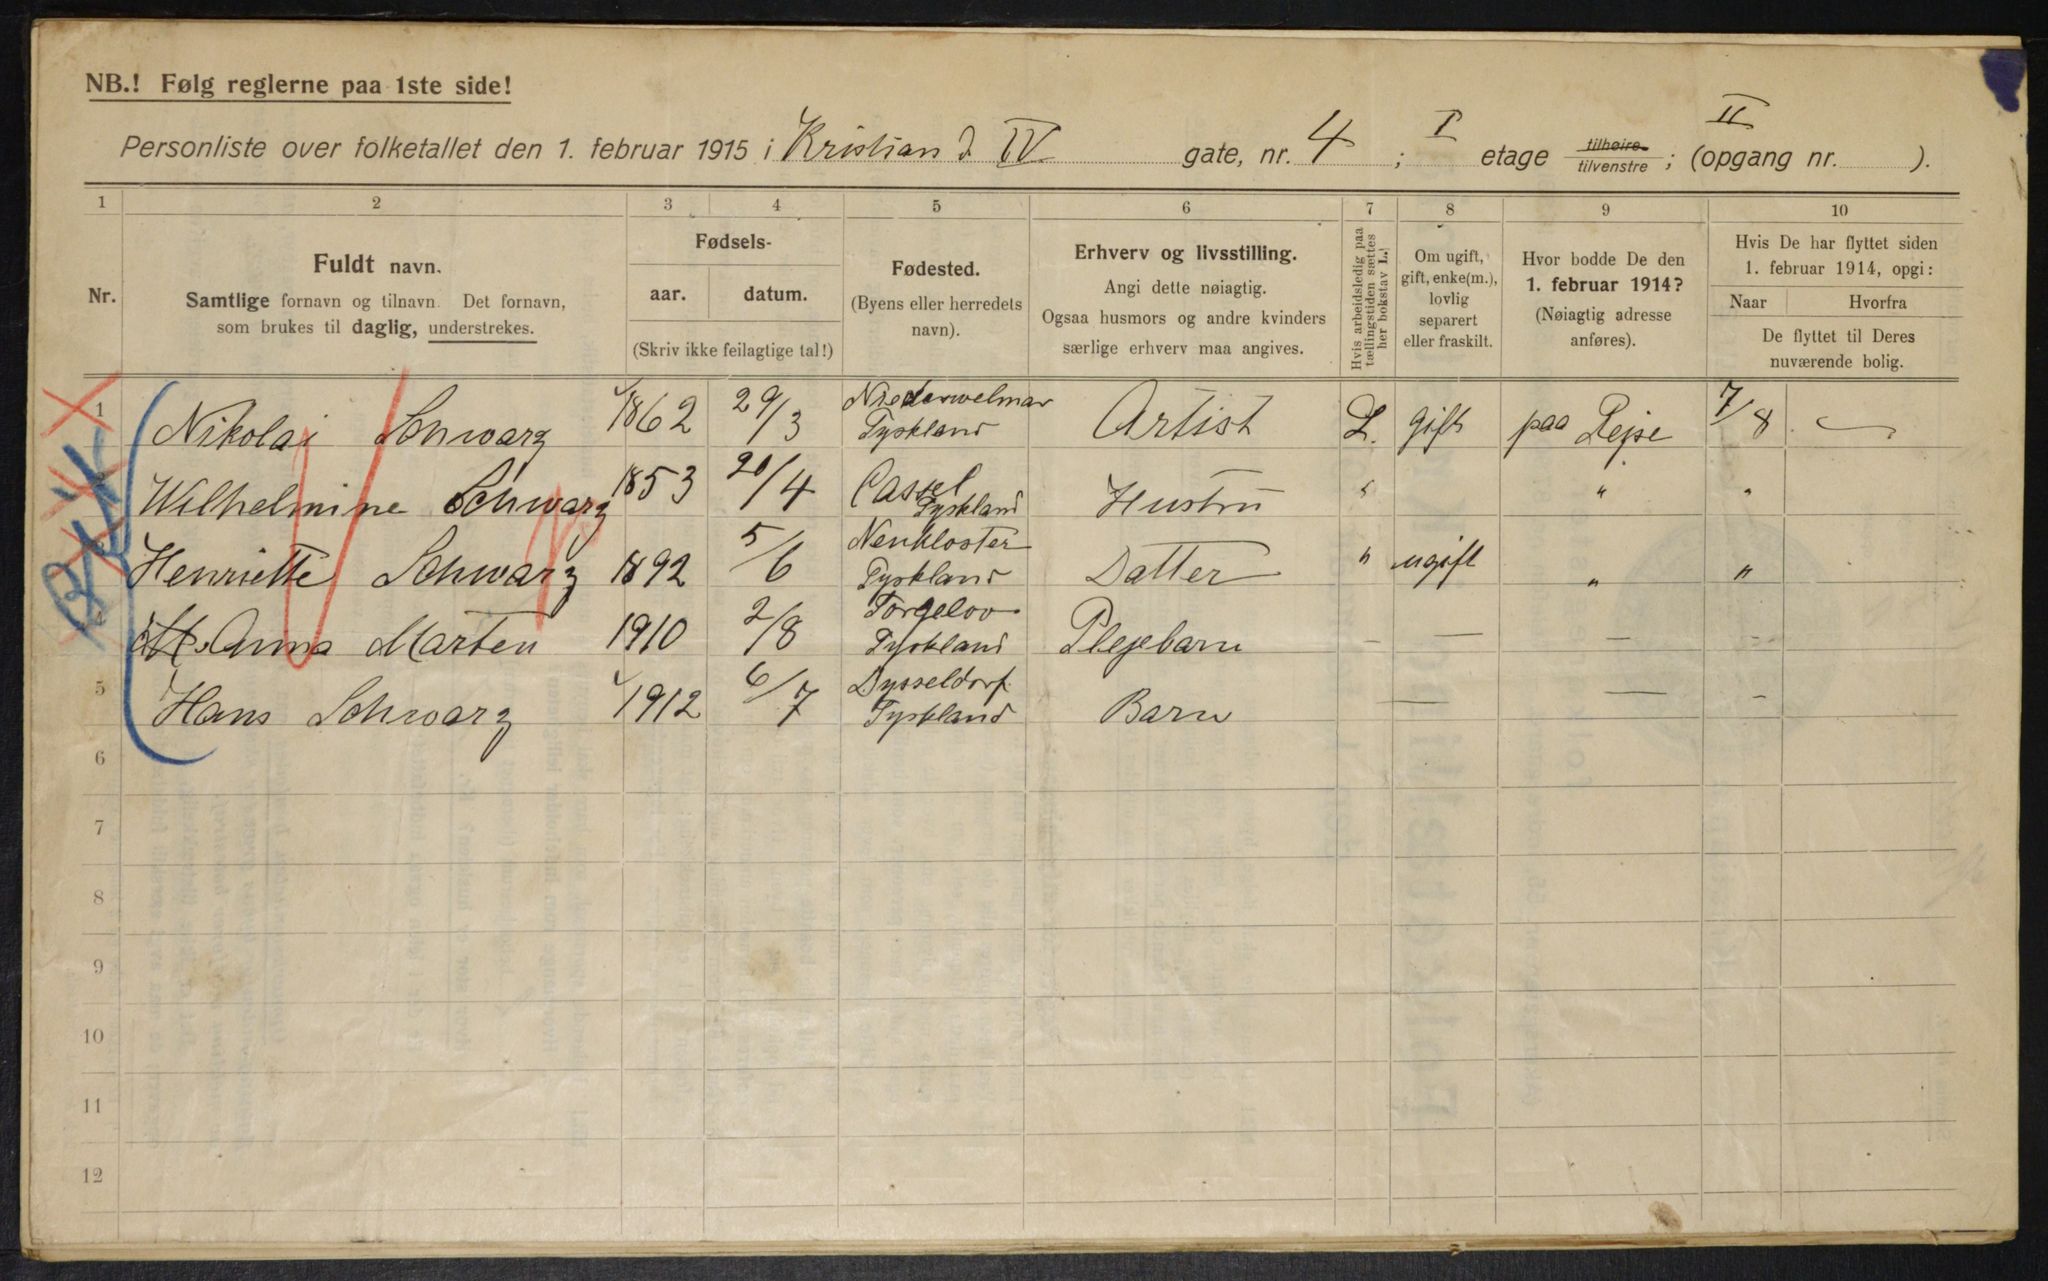 NB.! Følg reglerne paa 1ste side!
Personliste over folketallet den 1. februar 1915 i Kristian d IV gate, nr. 4 ; I etage tilhøire tilvenstre ; (opgang nr. II ).
1 2 3 4 5 6 7 8 9 10
Nr.
Fuldt navn.
Samtlige fornavn og tilnavn. Det fornavn,
som brukes til daglig, understrekes.
Fødsels-
aar. datum.
(Skriv ikke feilagtige tal!)
Fødested.
(Byens eller herredets
navn).
Erhverv og livsstilling.
Angi dette nøiagtig.
Ogsaa husmors og andre kvinders
særlige erhverv maa angives.
Hvis arbeidsledig paa
tællingstiden sættes
her bokstav L!
Om ugift,
gift, enke(m.),
lovlig
separert
eller fraskilt.
Hvor bodde De den
1. februar 1914?
(Nøiagtig adresse
anføres).
Hvis De har flyttet siden
1. februar 1914, opgi:
Naar Hvorfra
De flyttet til Deres
nuværende bolig.
1 Nikolai Schwarz 1862 29/3 Niederwelmar Tyskland Artist L. gift paa Rejse 7/8 —
2 Wilhelmine Schwarz 1853 20/4 Cassel Tyskland Hustru " " "
3 Henriette Schwarz 1892 5/6 Neukloster Tyskland Datter " ugift " "
4 Anna Marten 1910 2/8 Torgelov Tyskland Plejebarn — — — —
5 Hans Schwarz 1912 6/7 Dysseldorf Tyskland Barn — — —
6
7
8
9
10
11
12